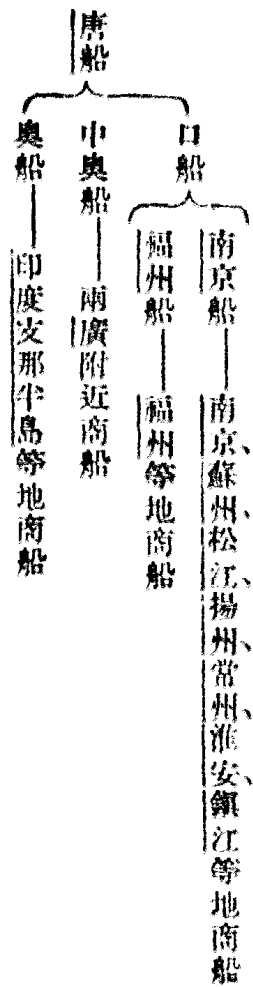 唐船
口船
南京船
南京、蘇州、松江、揚州、常州、淮安、鎭江等地商船
福州船
福州等地商船
中奥船
兩廣附近商船
奥船
印度支那半島等地商船